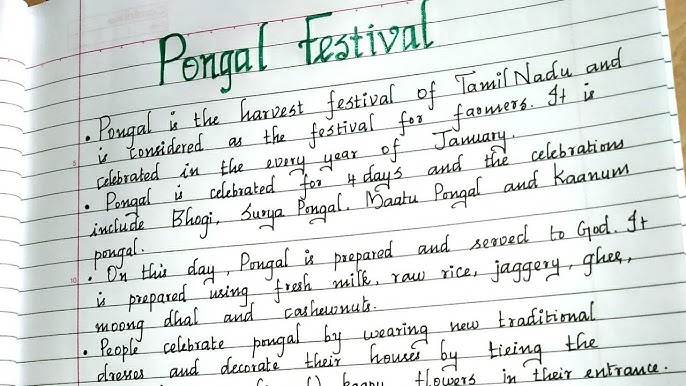 Pongal Festival
• Pongal is the harvest festival of Tamil Nadu and
is considered as the festival for farmers. It is
celebrated in the every year of January.
• Pongal is celebrated for 4 days and the celebrations
include Bhogi, Surya Pongal, Maatu Pongal and Kaanum
pongal.
• On this day, Pongal is prepared and served to God. It
is prepared using fresh milk, raw rice, jaggery, ghee,
moong dhal and cashewnuts.
• People celebrate pongal by wearing new traditional
dresses and decorate their houses by tieing the
flowers in their entrance.